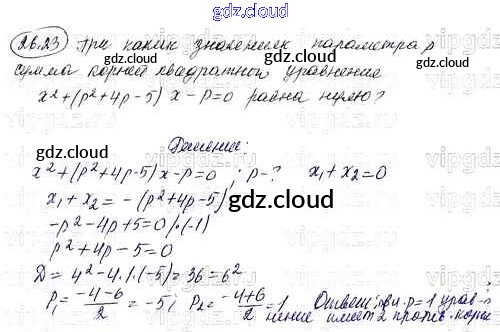 gdz.cloud
26.23 При каких значениях параметра p
сумма корней квадратного уравнение
x²+(p²+4p-5) x-p=0 равна нулю?
gdz.cloud
Решение:
x²+(p²+4p-5)x-p=0 ; p-? x₁+x₂=0
x₁+x₂= -(p²+4p-5)
gdz.cloud
-p²-4p+5=0/·(-1)
p²+4p-5=0
D=4²-4·1·(-5)=36=6²
p₁=(-4-6)/2=-5; p₂=(-4+6)/2=1 Ответ: при p=1 урав-
нение имеет 2 против. корня
gdz.cloud